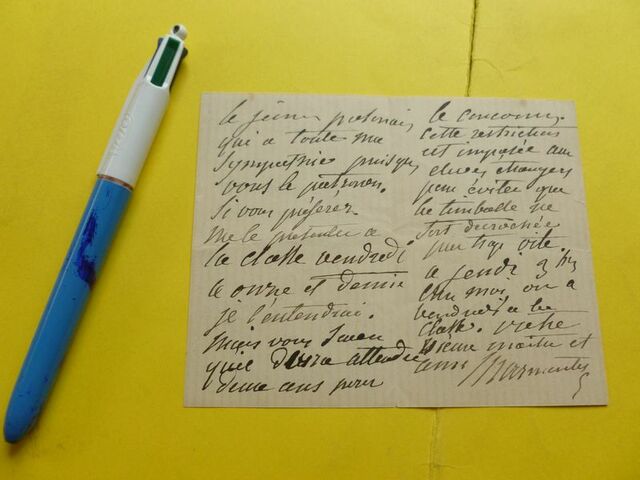 le jeune
qui a toute ma
sympathie puisque
vous le patronez.
Si vous préférez
me le présenter à
la classe vendredi
à onze et demie
je l'entendrai.
Mais vous savez
qu'il devra attendre
deux ans pour
le concours.
cette restriction
est imposée aux
élèves étrangers
pour éviter que
la timballe ne
soit décrochée
par trop vite.
à jeudi 9 hrs
chez moi ou à
vendredi à la
classe. votre
vieux maître et
ami Marmontel
BIC